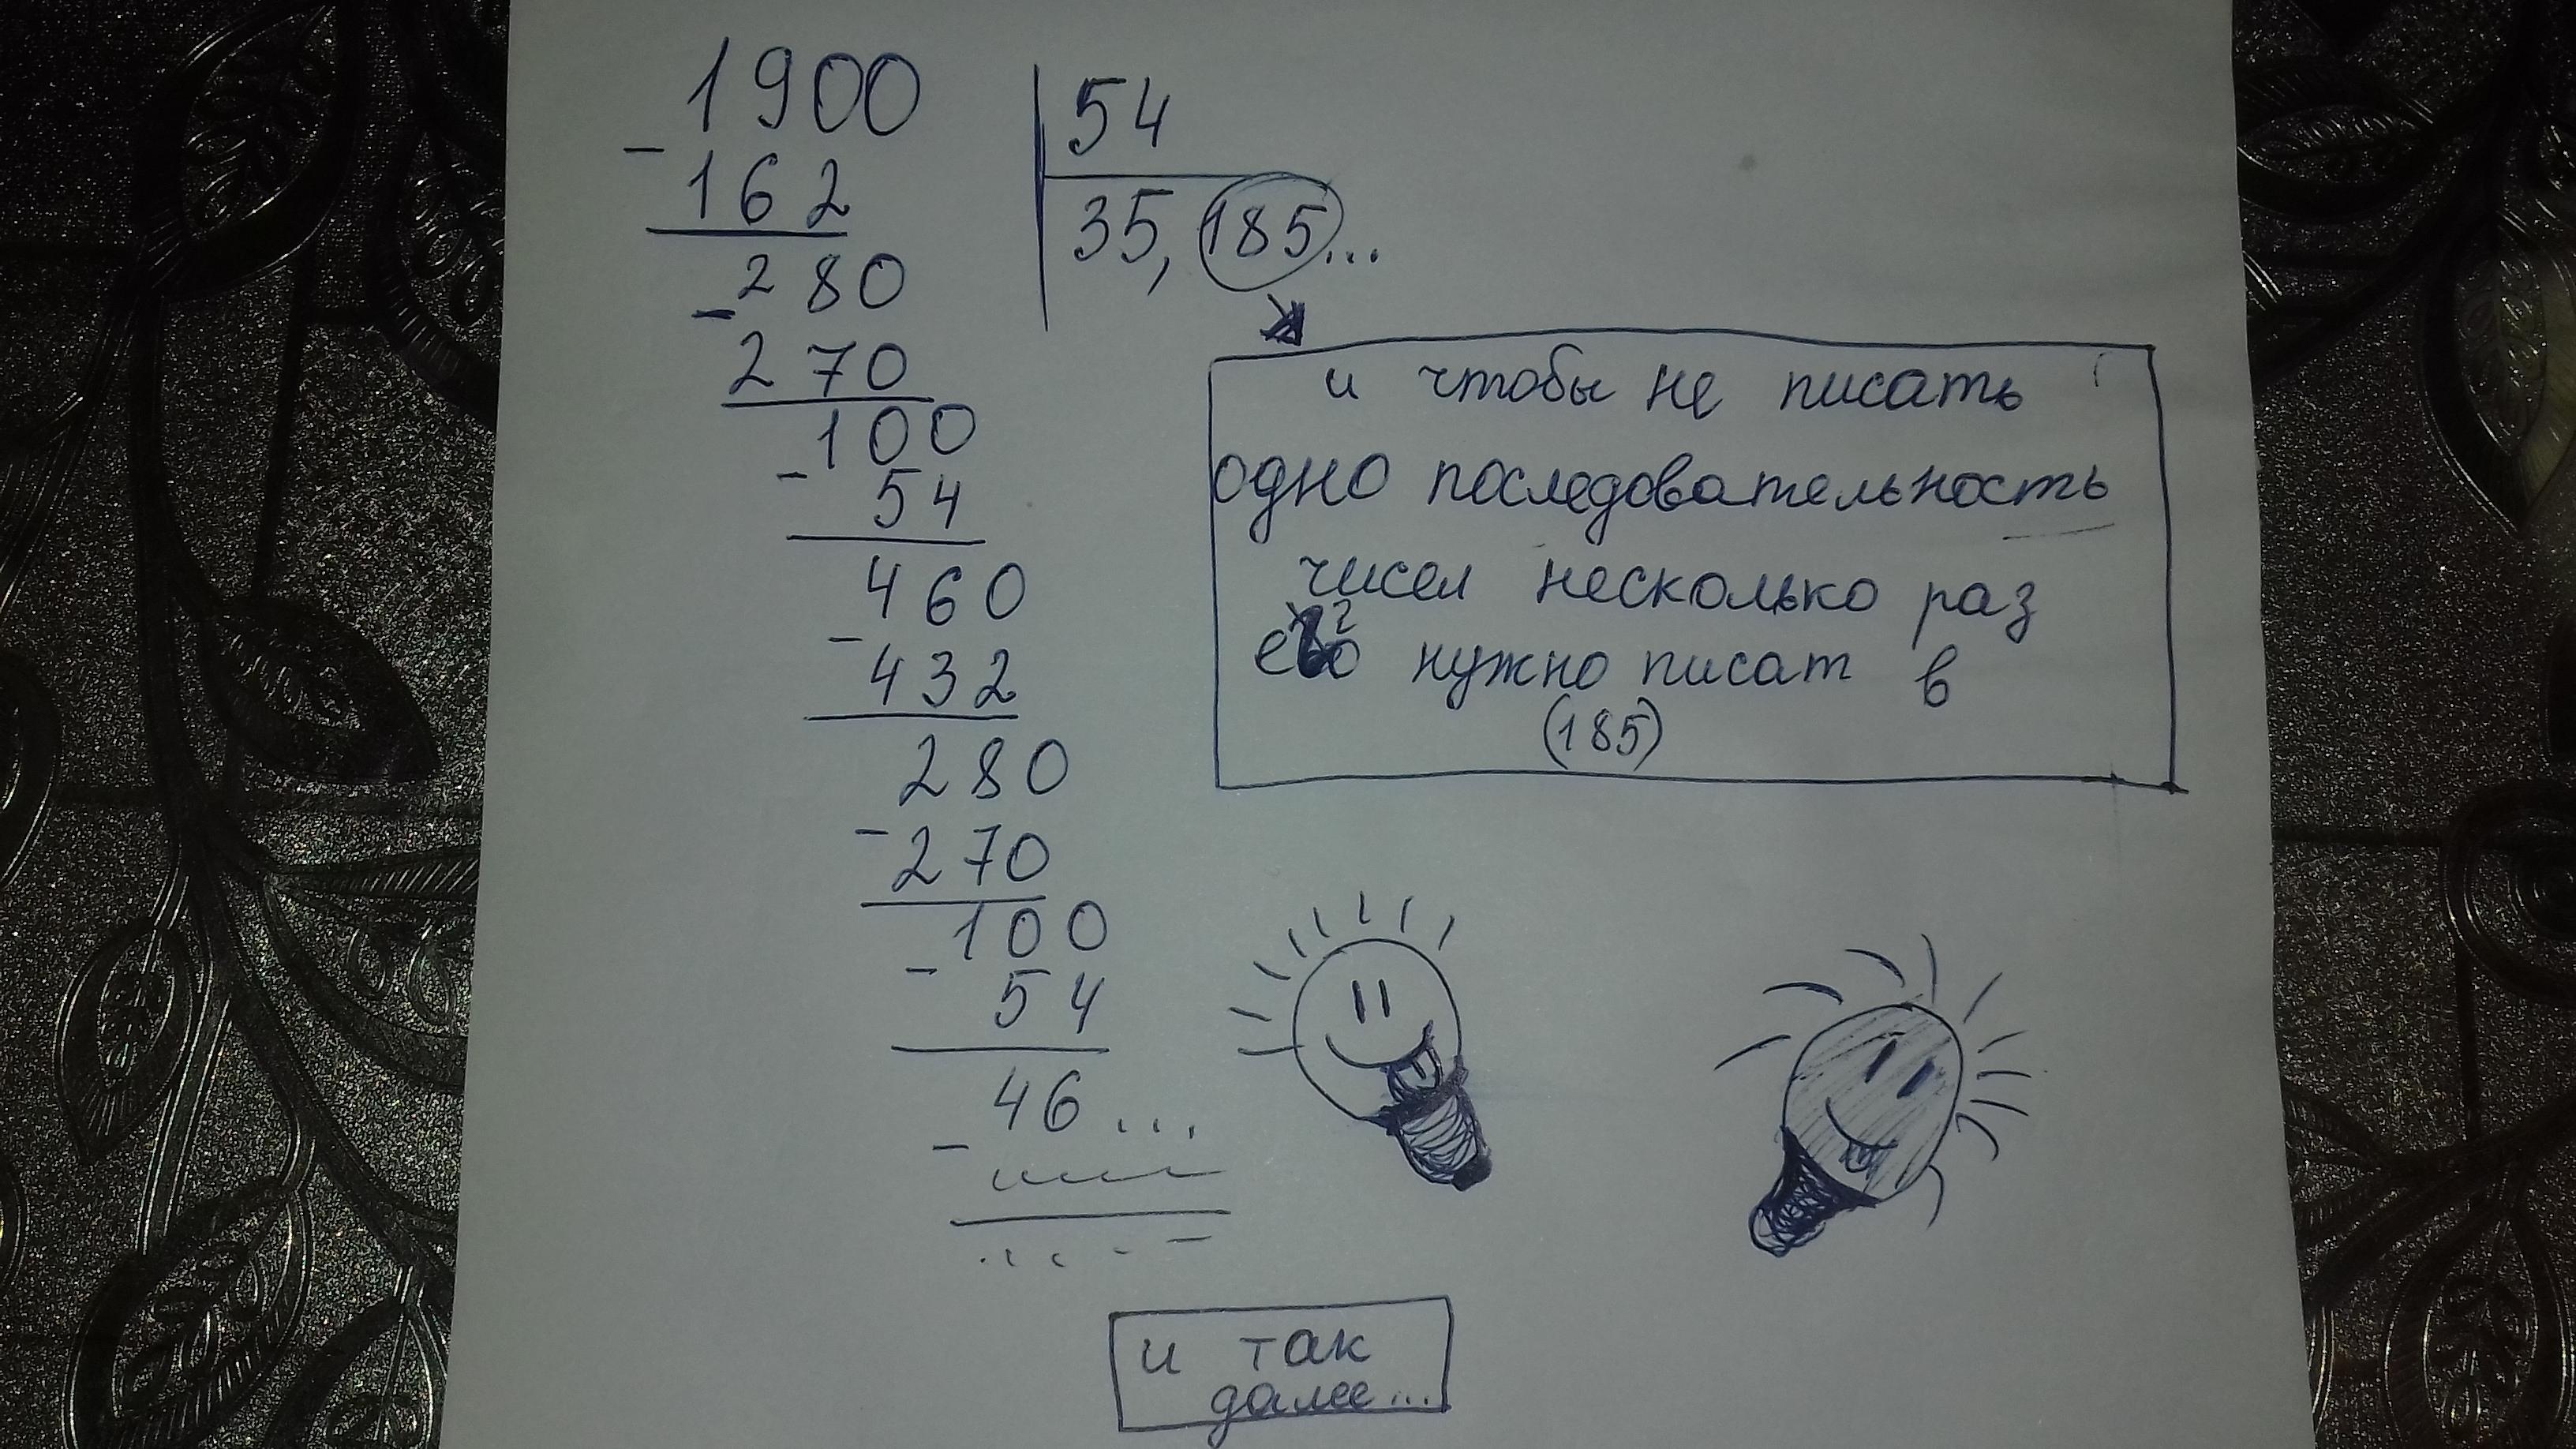 1900 54
- 162 35,185...
280
- 270
100
- 54
460
- 432
280
- 270
100
- 54
46...
-
и чтобы не писать
одно последовательность
чисел несколько раз
его нужно писат в
(185)
и так
далее...